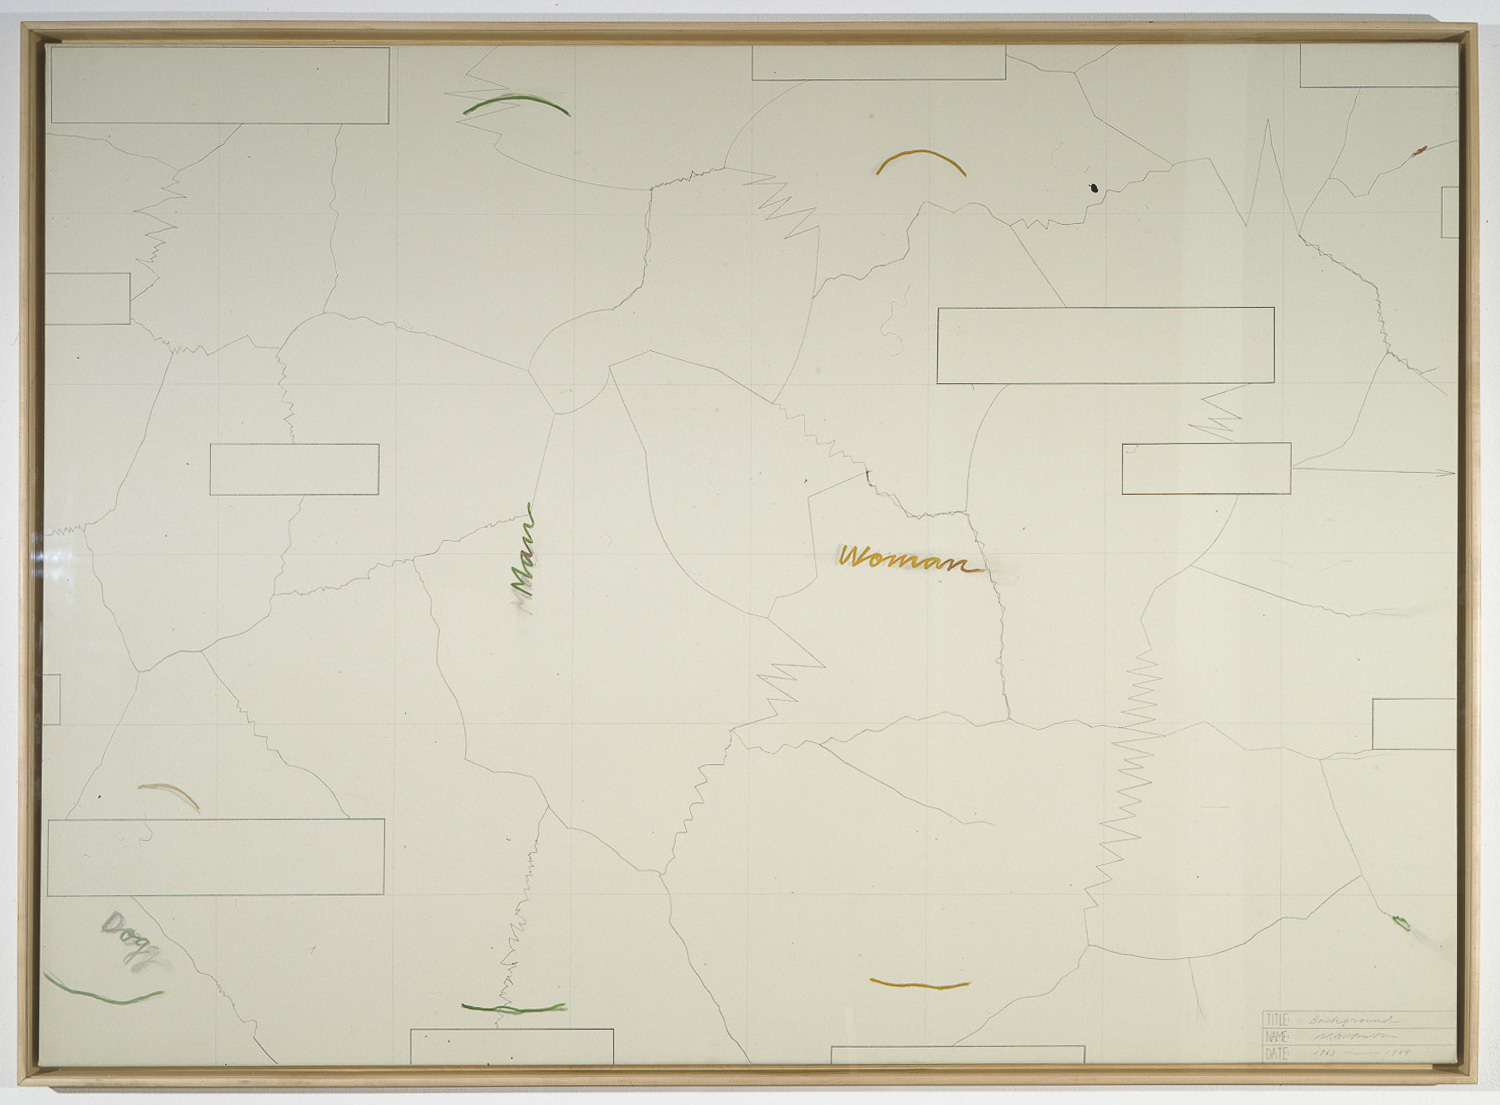 Man
Woman
Dog
TITLE: Background
NAME: ARAKAWA
DATE: 1963 — 1964